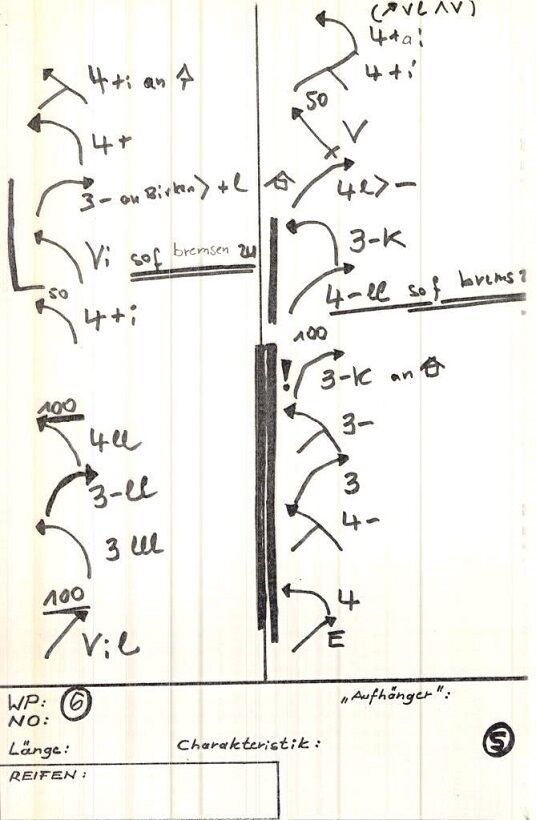 4+i an
4+
3- an Birken > +l
Vi sof bremsen zu
50
4+i
100
4ll
3-ll
3 lll
100
Vil
(↗Vl ∧V)
4+ai
4+i
50
V
4l>-
3-K
4-ll sof brems
100
! 3-K an
3-
3
4-
4
E
WP: 6
NO:
Länge:
Charakteristik:
REIFEN:
„Aufhänger":
5